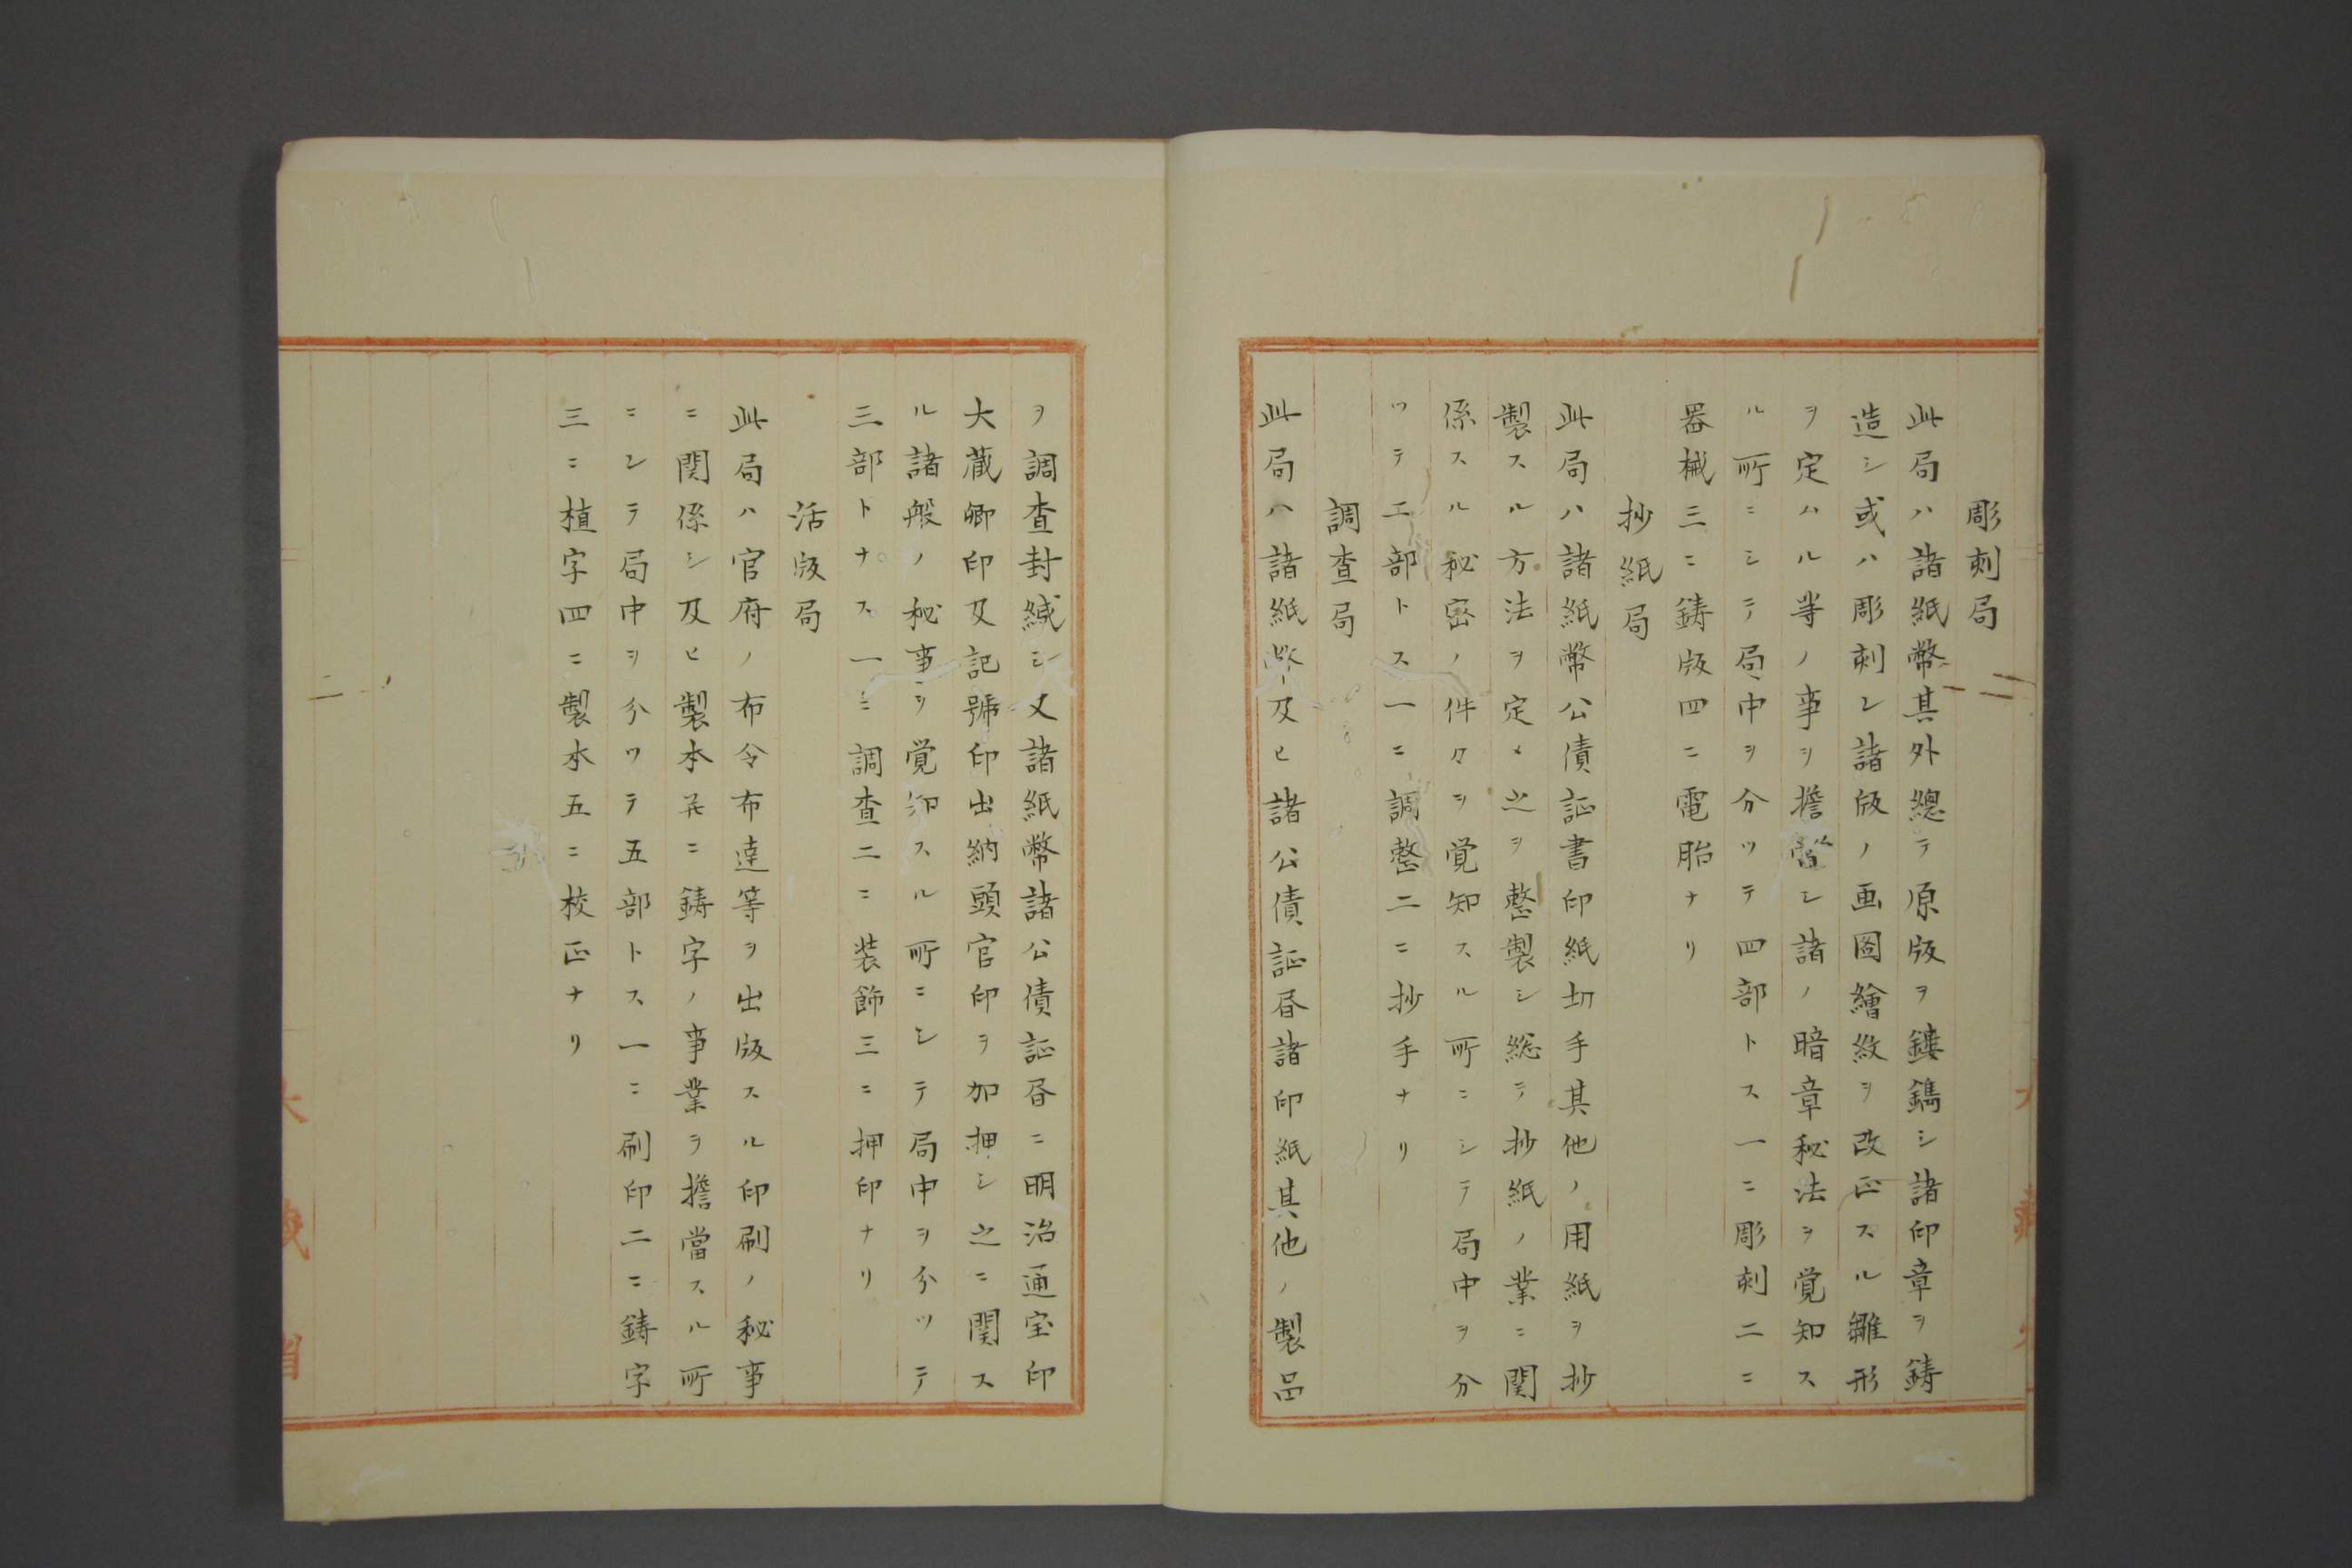 彫刻局
此局ハ諸紙幣其外總テ原版ヲ鏤鐫シ諸印章ヲ鋳
造シ或ハ彫刻シ諸版ノ画圖繪紋ヲ改正スル雛形
ヲ定ムル等ノ事ヲ擔當シ諸ノ暗章秘法ヲ覚知ス
ル所ニシテ局中ヲ分ツテ四部トス一ニ彫刻二ニ
器械三ニ鋳版四ニ電胎ナリ
抄紙局
此局ハ諸紙幣公債証書印紙切手其他ノ用紙ヲ抄
製スル方法ヲ定メ之ヲ整製シ総テ抄紙ノ業ニ関
係スル秘密ノ件々ヲ覚知スル所ニシテ局中ヲ分
ツテ二部トス一ニ調整二ニ抄手ナリ
調査局
此局ハ諸紙幣及ヒ諸公債証書諸印紙其他ノ製品
ヲ調査封緘シ又諸紙幣諸公債証書ニ明治通宝印
大蔵卿印及記號印出納頭官印ヲ加押シ之ニ関ス
ル諸般ノ秘事ヲ覚知スル所ニシテ局中ヲ分ツテ
三部トナス一ニ調査二ニ装飾三ニ押印ナリ
活版局
此局ハ官府ノ布令布達等ヲ出版スル印刷ノ秘事
ニ関係シ及ヒ製本并ニ鋳字ノ事業ヲ擔當スル所
ニシテ局中ヲ分ツテ五部トス一ニ刷印二ニ鋳字
三ニ植字四ニ製本五ニ校正ナリ
二
大蔵省